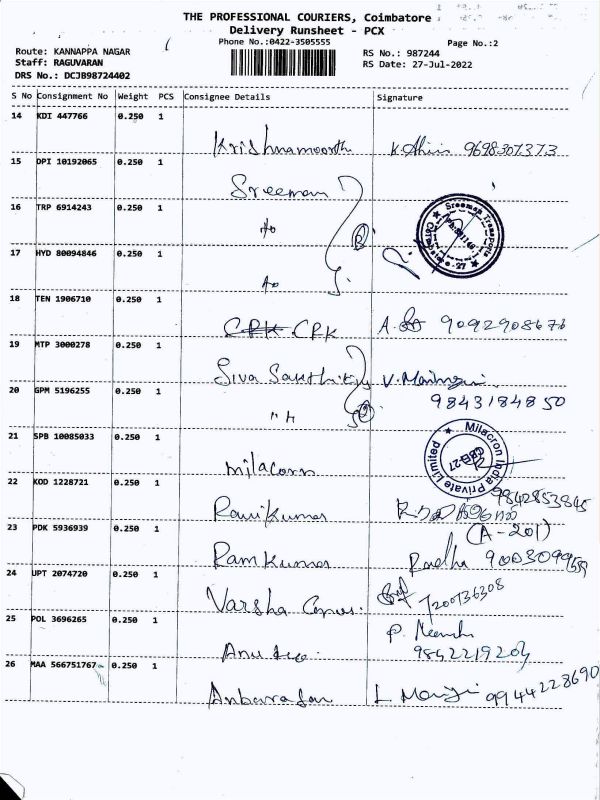 THE PROFESSIONAL COURIERS, Coimbatore
Delivery Runsheet - PCX
Phone No.:0422-3505555
Page No.:2
Route: KANNAPPA NAGAR
RS No.: 987244
Staff: RAGUVARAN
RS Date: 27-Jul-2022
DRS No.: DCJB98724402
S No Consignment No Weight PCS Consignee Details Signature
14 KDI 447766 0.250 1
Krishnamoorth K. 9698307373
15 DPI 10192065 0.250 1
Sreeman
16 TRP 6914243 0.250 1
Sreeman Transports
Coimbatore - 27
17 HYD 80094846 0.250 1
18 TEN 1906710 0.250 1
CPK A.
19 MTP 3000278 0.250 1
Siva V.
20 GPM 5196255 0.250 1
9843184850
21 SPB 10085033 0.250 1
Milacron India Private Limited
CBE-27
milacorn
22 KOD 1228721 0.250 1
9842853845
Ravikumar
(A-201)
23 PDK 5936939 0.250 1
Ramkumar Radha
24 UPT 2074720 0.250 1
Varsha 7200736308
25 POL 3696265 0.250 1
P.
Anu
26 MAA 566751767 0.250 1
Anbarasan L. 9944228690